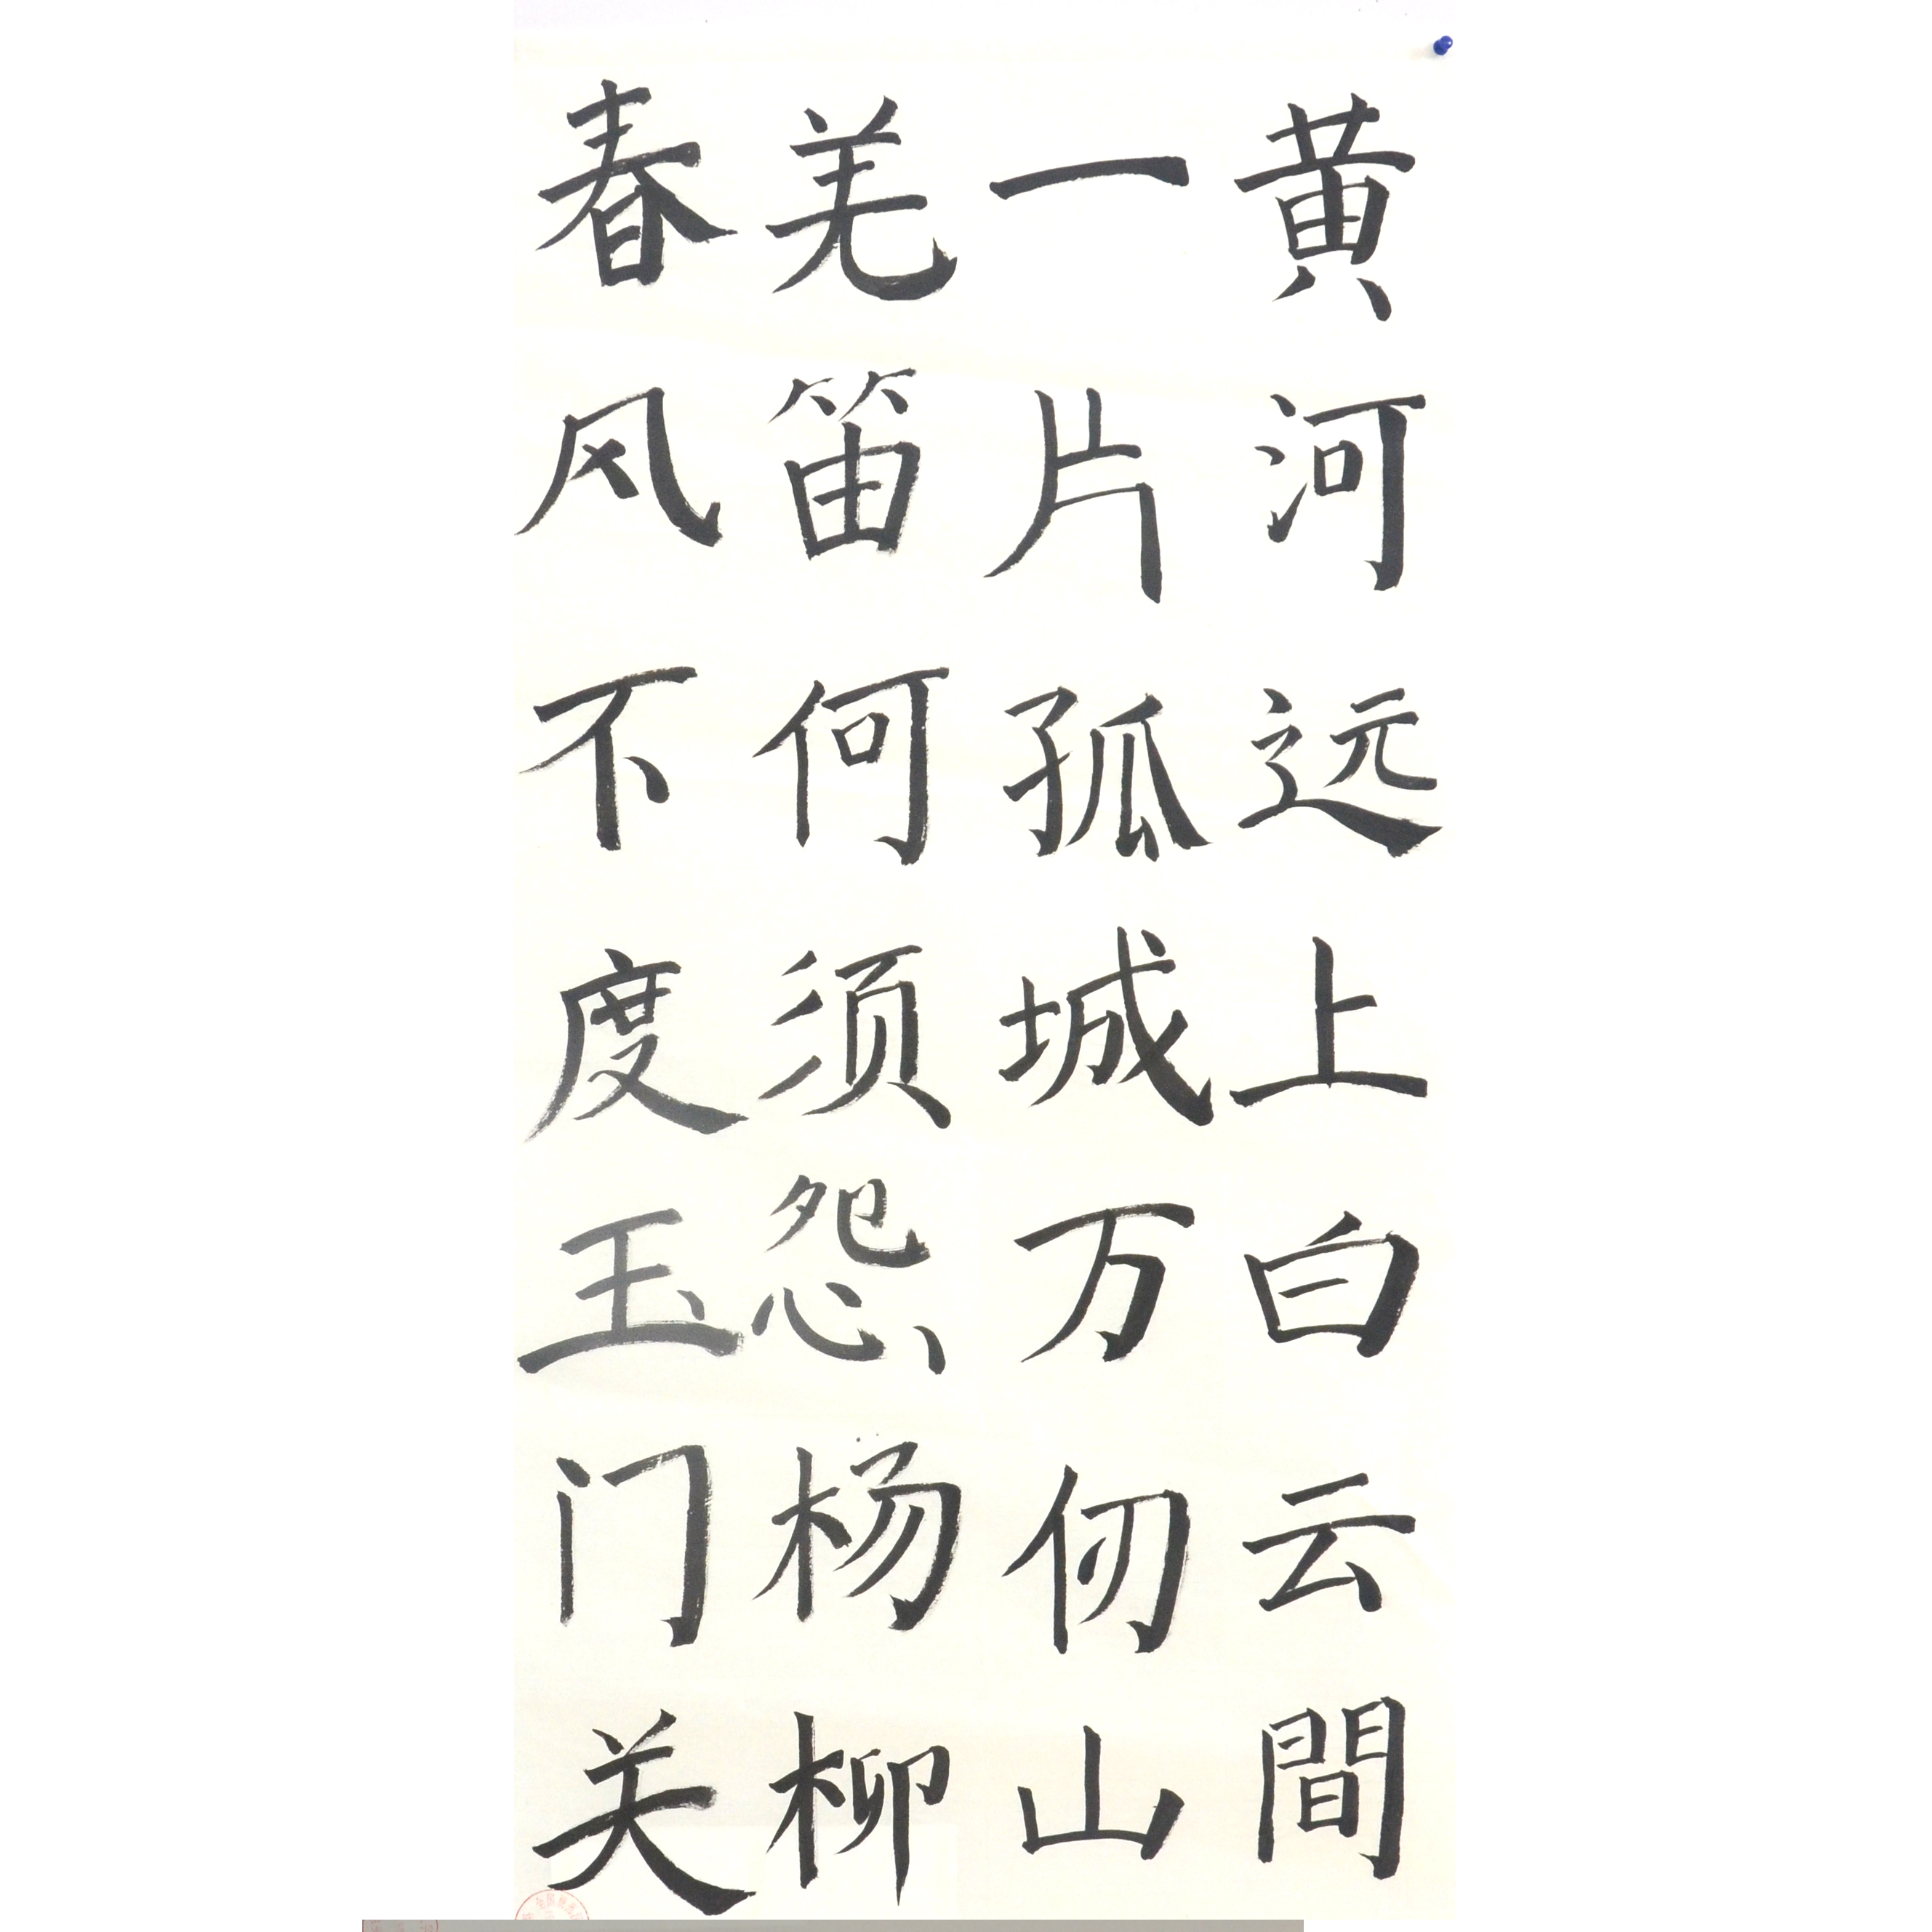 黄河远上白云間
一片孤城万仞山
羌笛何须怨杨柳
春风不度玉门关